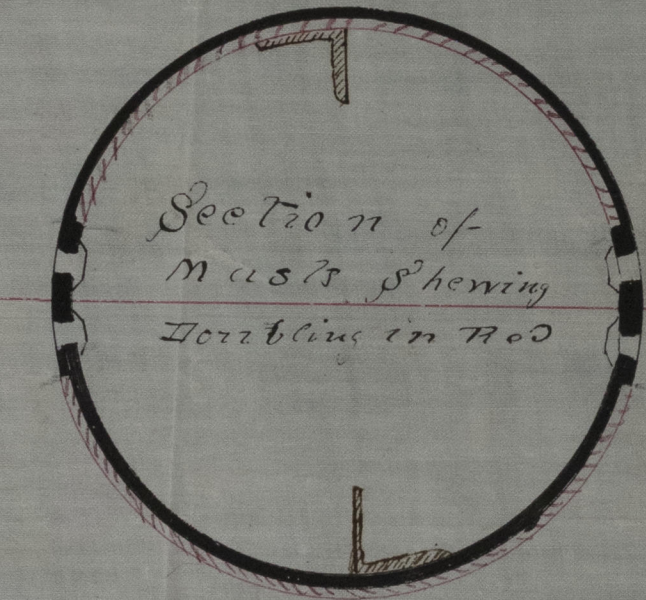 Section of
Masts Shewing
Doubling in Red